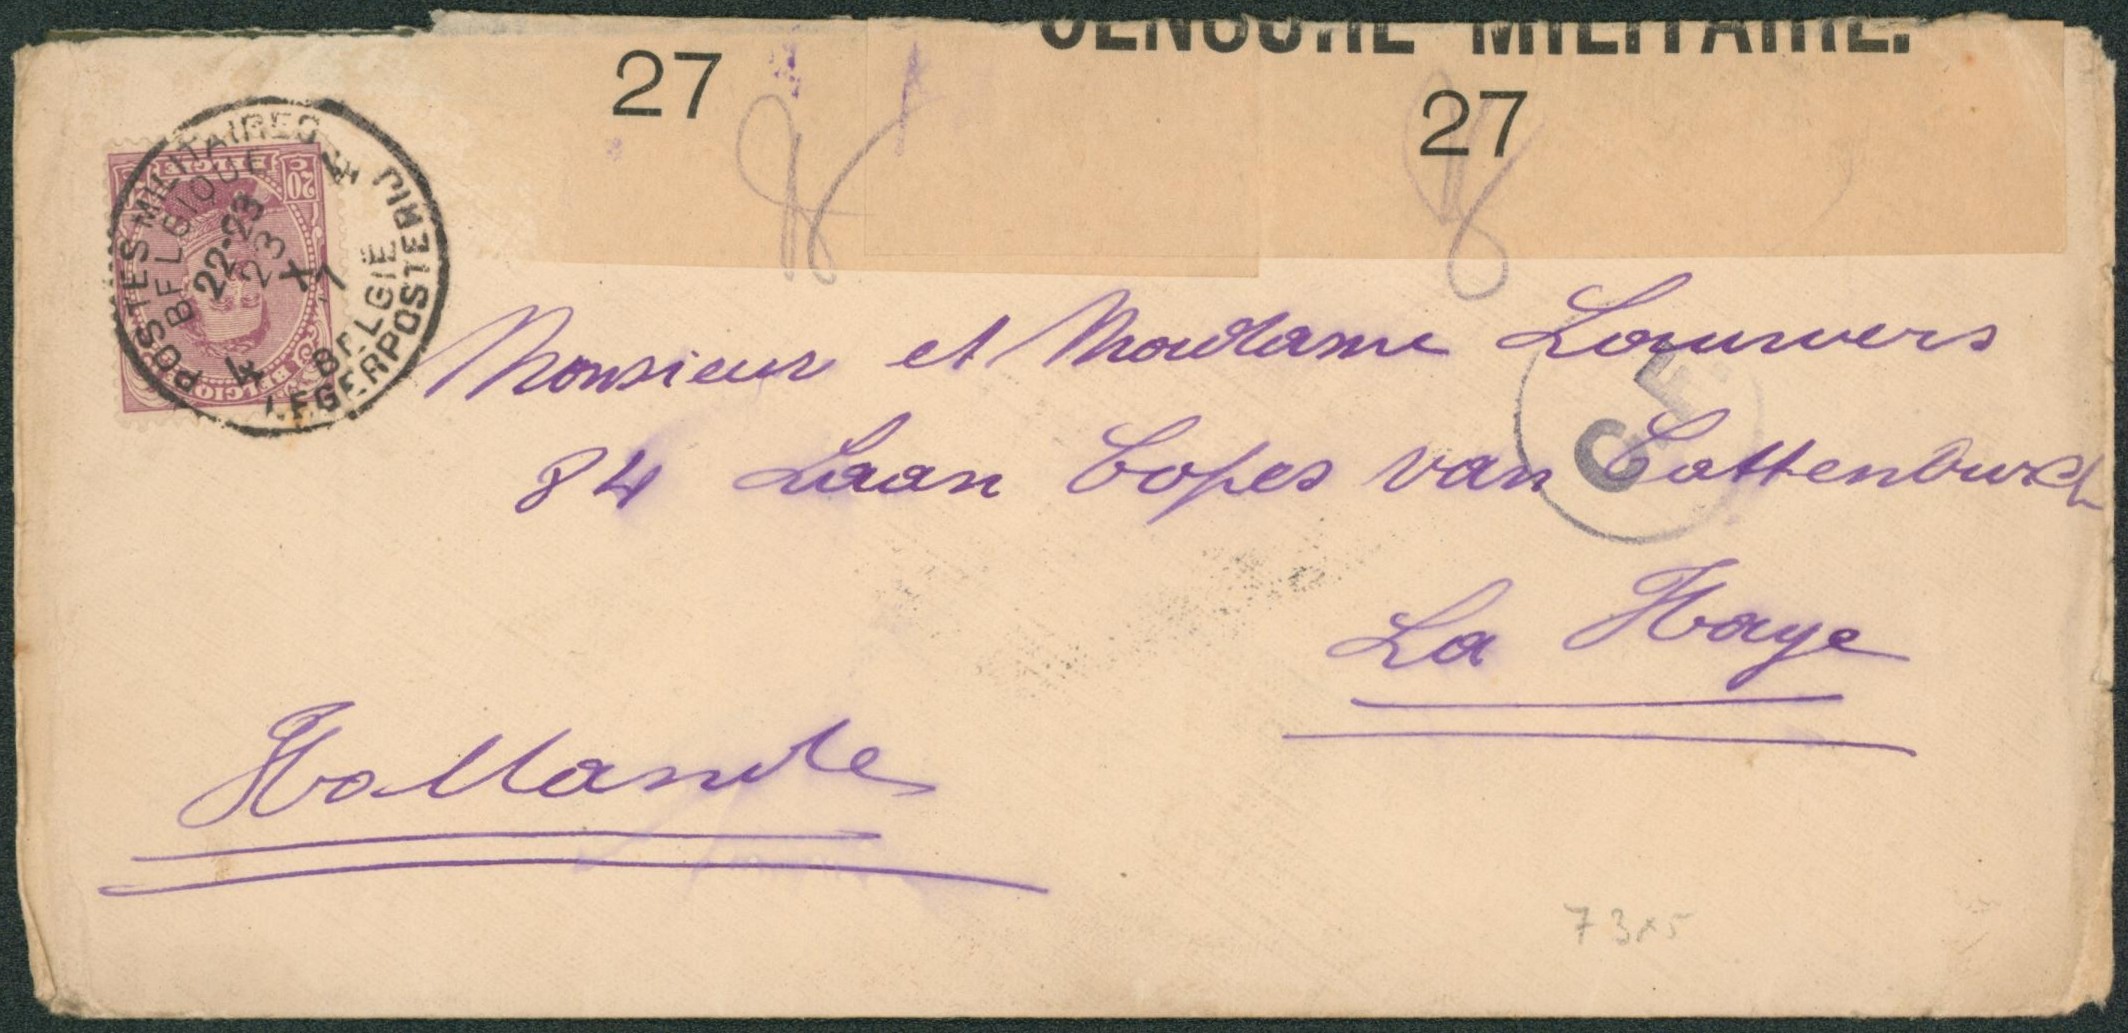 CENSURE MILITAIRE.
27
27
POSTES MILITAIRES
BELGIQUE
22-23
23
X
7
4
BELGIE
LEGERPOSTERIJ
20
BELGIQUE
BELGIË
Monsieur et Madame Lauwers
C.F.
84 Laan Copes van Cattenburch
La Haye
Hollande
73x5